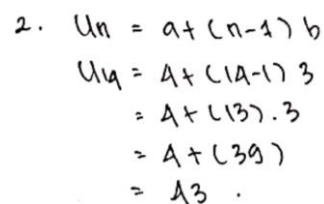 2. Un = a + (n-1) b
U14 = 4 + (14-1) 3
= 4 + (13) . 3
= 4 + (39)
= 43 .